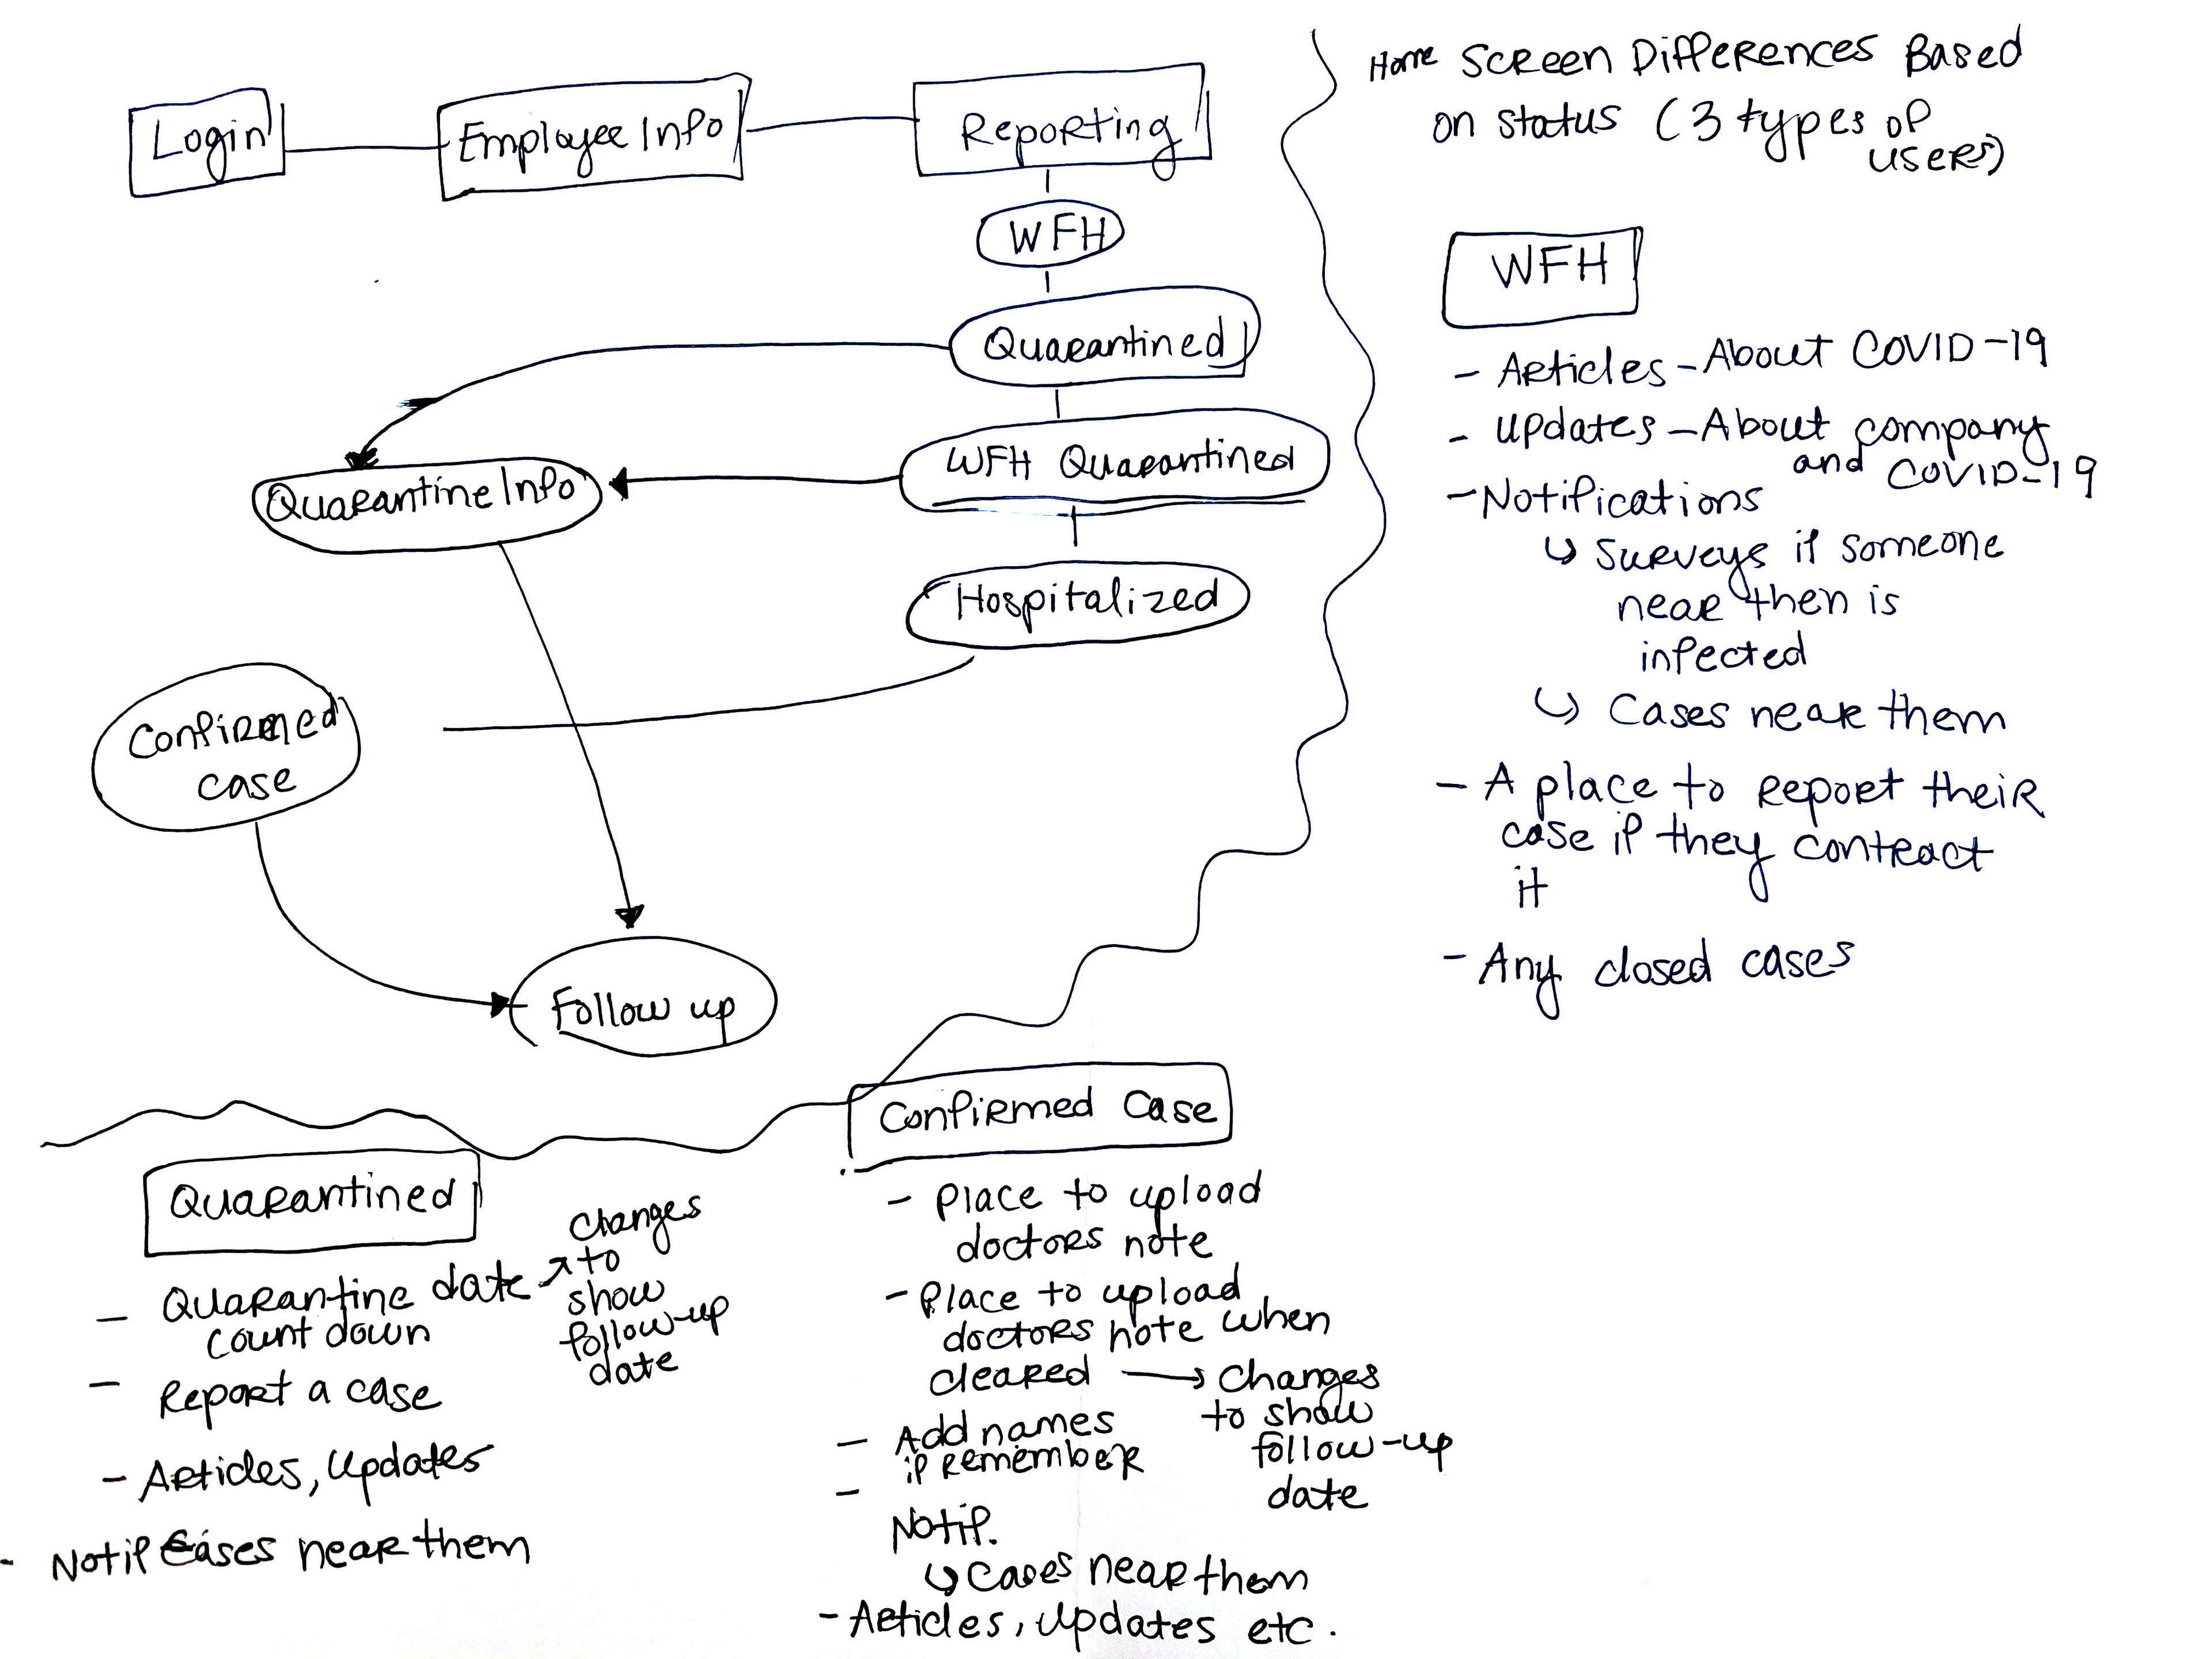 Login
Employee Info
Reporting
WFH
Quarantined
WFH Quarantined
Quarantine Info
Hospitalized
Confirmed
case
Follow up
Home Screen Differences Based
on status (3 types of
users)
WFH
- Articles - About COVID-19
- Updates - About company
and COVID-19
- Notifications
↳ Surveys if someone
near then is
infected
↳ Cases near them
- A place to report their
case if they contract
it
- Any closed cases
Quarantined
- Quarantine date
count down
changes
↗ to
show
follow-up
date
- Report a case
- Articles, Updates
- Notif Cases near them
Confirmed Case
- Place to upload
doctors note
- Place to upload
doctors note when
cleared → changes
to show
follow-up
date
- Add names
if remember
- Notif.
↳ Cases near them
- Articles, updates etc.